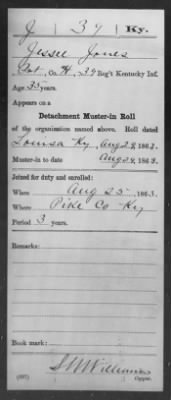 J 39 Ky.
Jessee Jones
Pvt, Co. H, 39 Reg't Kentucky Inf.
Age 35 years.
Appears on a
Detachment Muster-in Roll
of the organization named above. Roll dated
Louisa Ky, Aug 29, 1863.
Muster-in to date Aug 29, 1863.
Joined for duty and enrolled:
When Aug 25, 1863.
Where Pike Co Ky
Period 3 years.
Remarks:
Book mark:
Williams
Copyist.